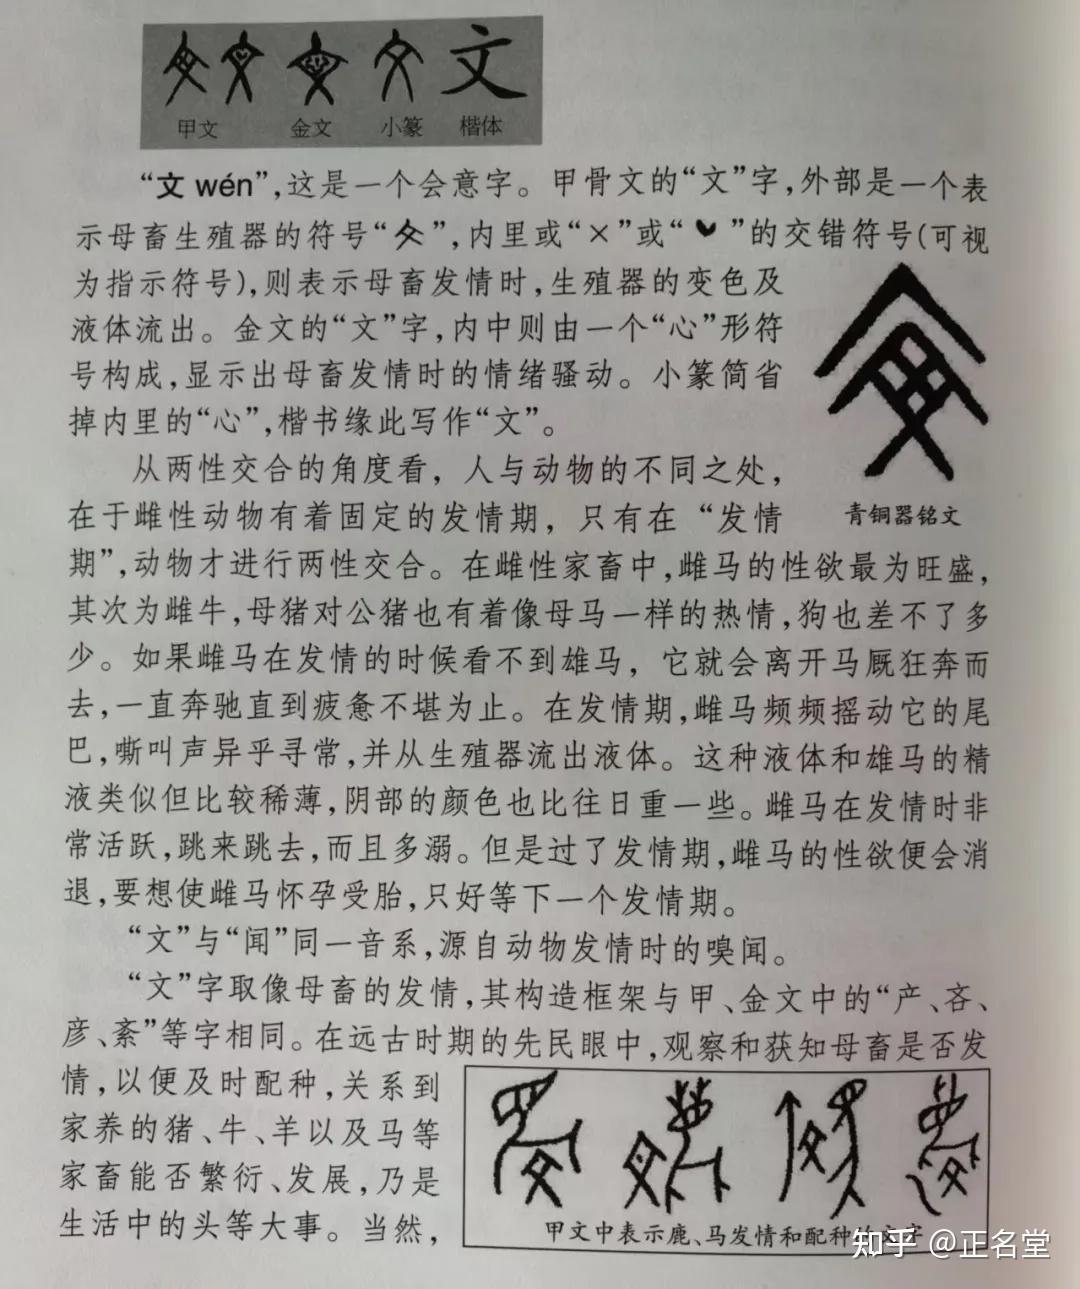 文
甲文 金文 小篆 楷体
“文 wén”,这是一个会意字。甲骨文的“文”字,外部是一个表
示母畜生殖器的符号“ ”,内里或“×”或“ ”的交错符号(可视
为指示符号),则表示母畜发情时,生殖器的变色及
液体流出。金文的“文”字,内中则由一个“心”形符
号构成,显示出母畜发情时的情绪骚动。小篆简省
掉内里的“心”,楷书缘此写作“文”。
从两性交合的角度看,人与动物的不同之处,
在于雌性动物有着固定的发情期,只有在“发情
青铜器铭文
期”,动物才进行两性交合。在雌性家畜中,雌马的性欲最为旺盛,
其次为雌牛,母猪对公猪也有着像母马一样的热情,狗也差不了多
少。如果雌马在发情的时候看不到雄马,它就会离开马厩狂奔而
去,一直奔驰直到疲惫不堪为止。在发情期,雌马频频摇动它的尾
巴,嘶叫声异乎寻常,并从生殖器流出液体。这种液体和雄马的精
液类似但比较稀薄,阴部的颜色也比往日重一些。雌马在发情时非
常活跃,跳来跳去,而且多溺。但是过了发情期,雌马的性欲便会消
退,要想使雌马怀孕受胎,只好等下一个发情期。
“文”与“闻”同一音系,源自动物发情时的嗅闻。
“文”字取像母畜的发情,其构造框架与甲、金文中的“产、吝、
彦、紊”等字相同。在远古时期的先民眼中,观察和获知母畜是否发
情,以便及时配种,关系到
家养的猪、牛、羊以及马等
家畜能否繁衍、发展,乃是
生活中的头等大事。当然,
甲文中表示鹿、马发情和配种的文字
知乎 @正名堂